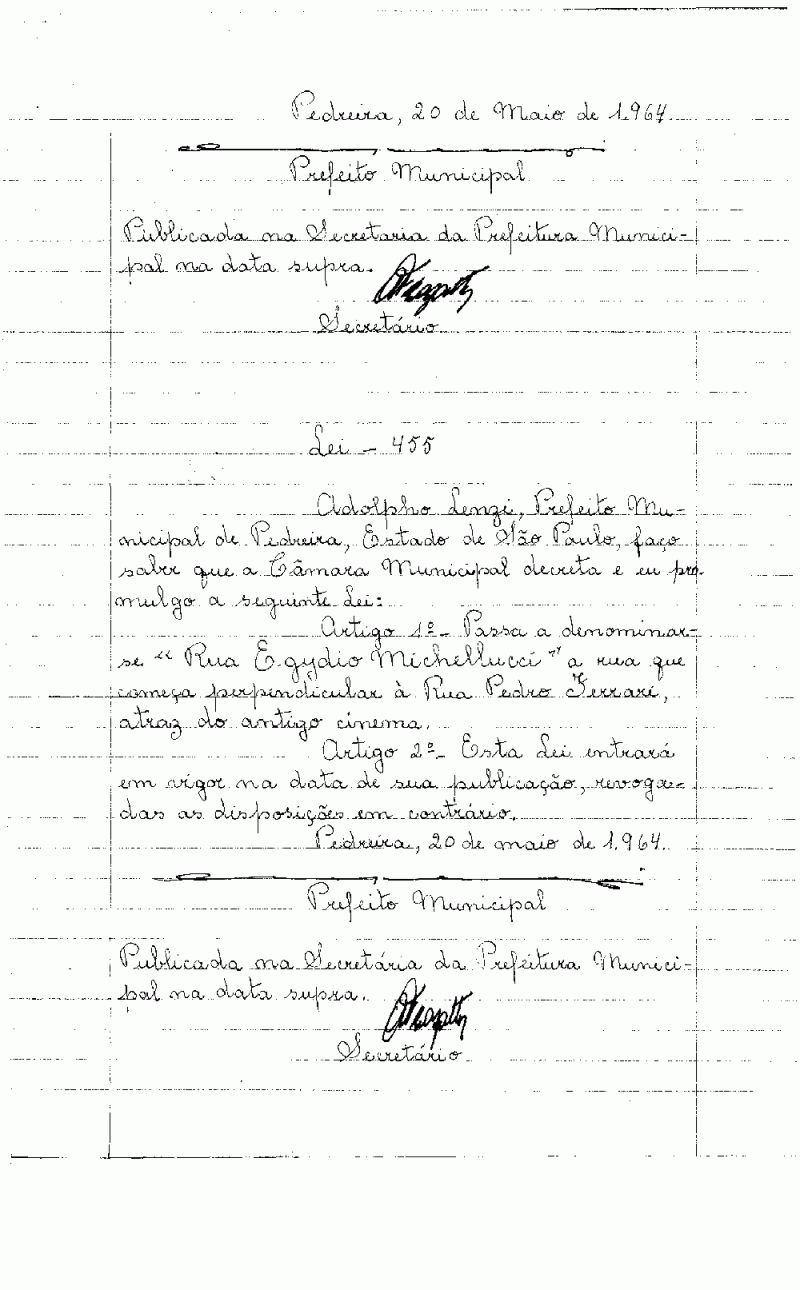 Pedreira, 20 de Maio de 1.964.
Prefeito Municipal
Publicada na Secretaria da Prefeitura Munici-
pal na data supra.
Secretário
Lei - 455
Adolpho Lenzi, Prefeito Mu-
nicipal de Pedreira, Estado de São Paulo, faço
saber que a Câmara Municipal decreta e eu pro-
mulgo a seguinte Lei:
Artigo 1º - Passa a denominar-
se "Rua Egydio Michellucci" a rua que
começa perpendicular à Rua Pedro Ferrari,
atraz do antigo cinema.
Artigo 2º - Esta Lei entrará
em vigor na data de sua publicação, revoga-
das as disposições em contrário.
Pedreira, 20 de maio de 1.964.
Prefeito Municipal
Publicada na Secretária da Prefeitura Munici-
pal na data supra.
Secretário